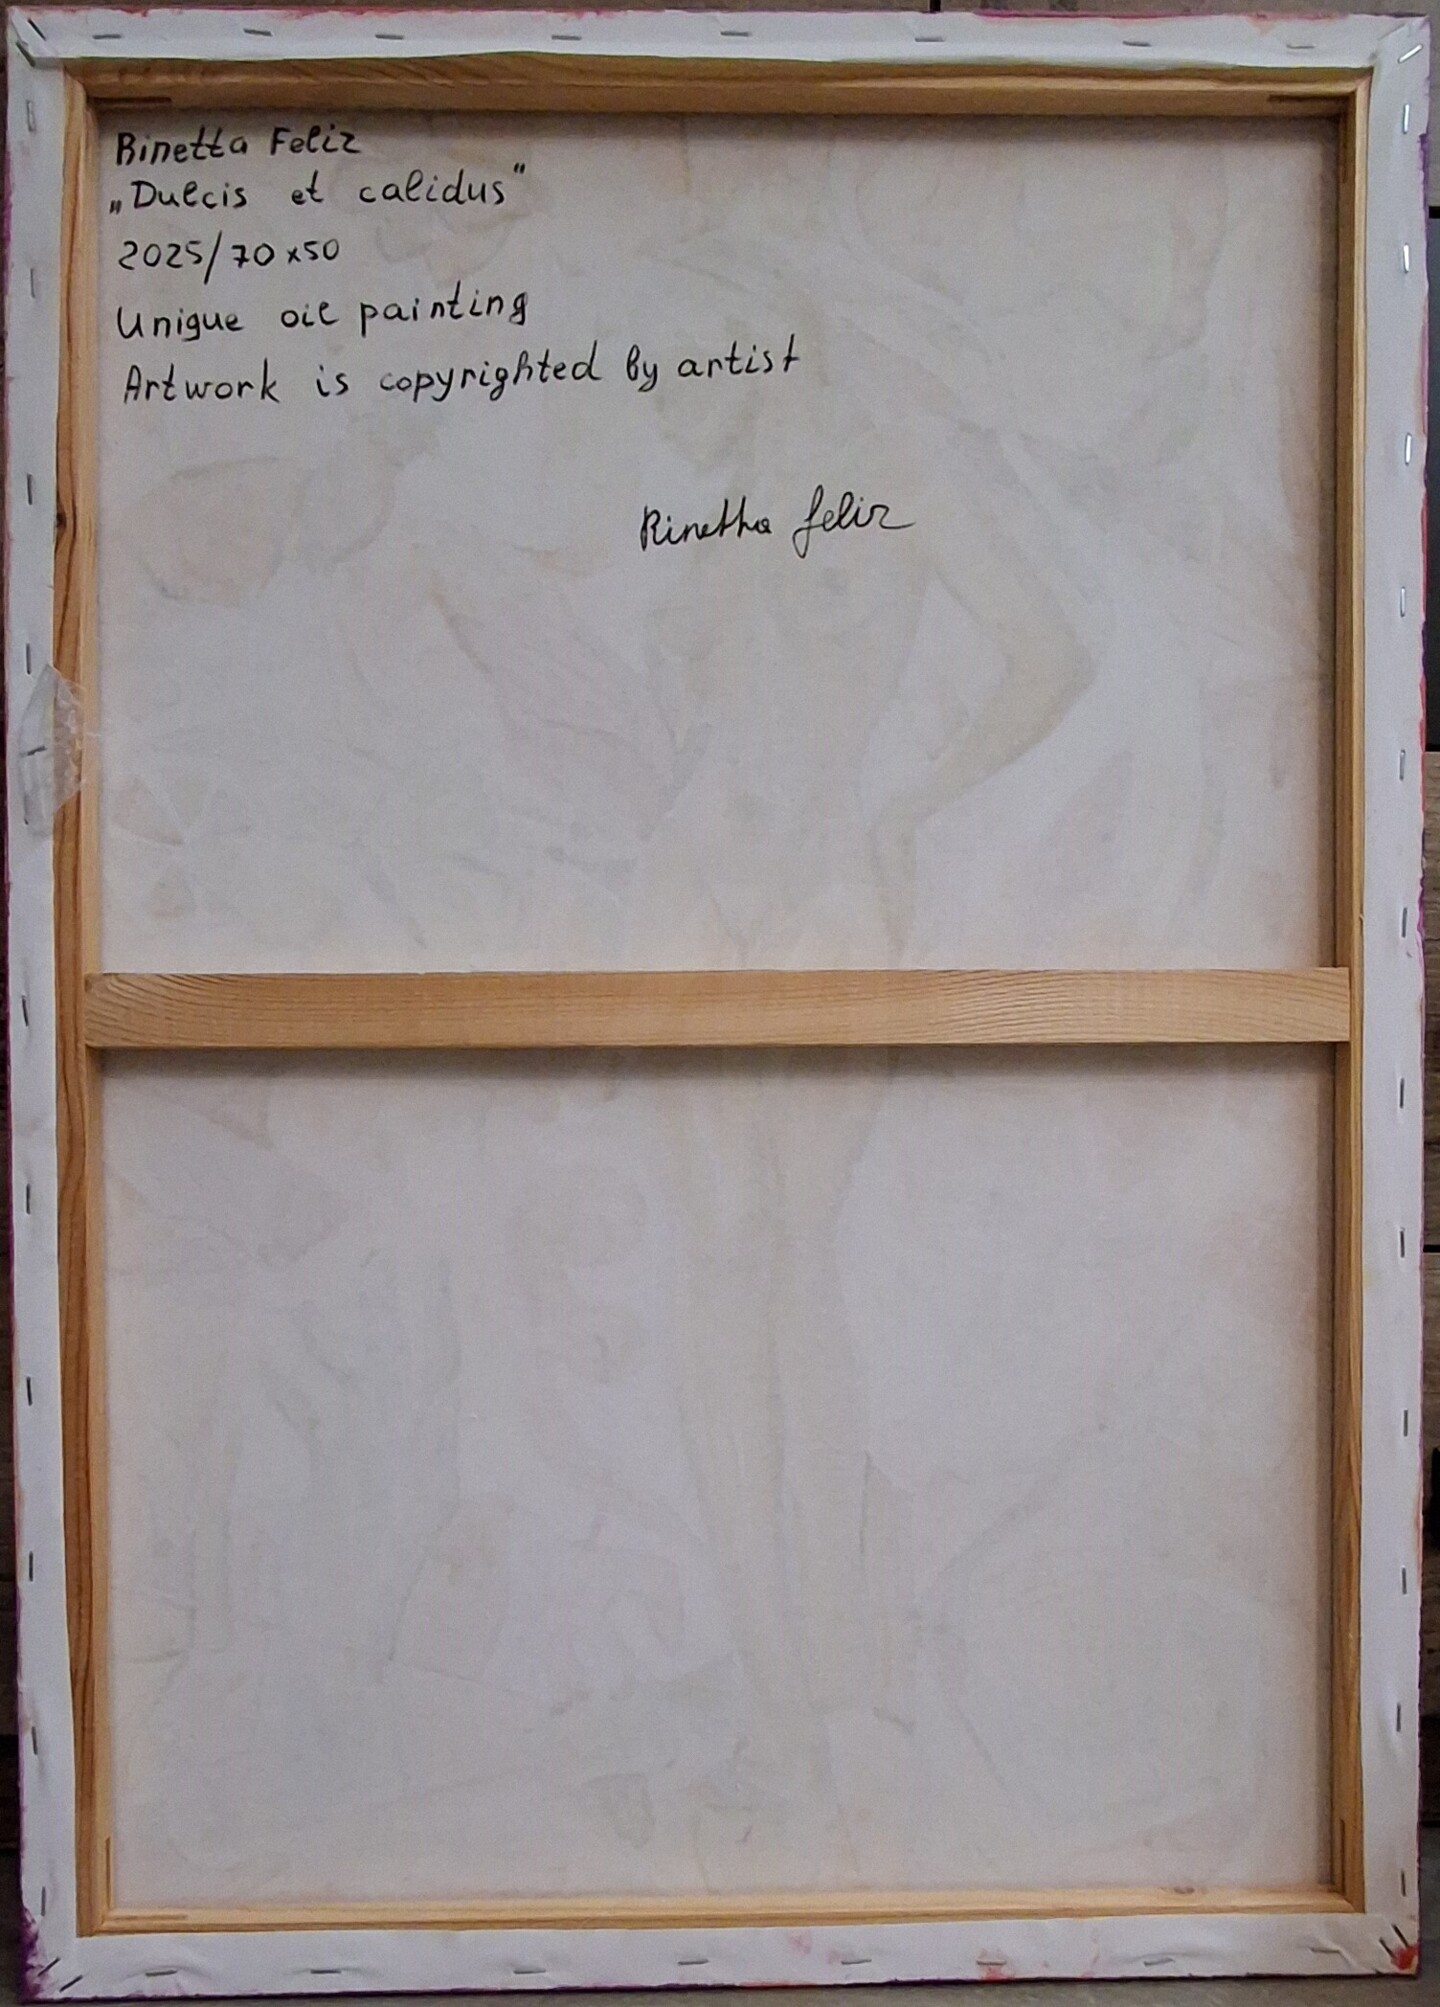 Rinetta Feliz
„Dulcis et calidus"
2025/70x50
Unique oil painting
Artwork is copyrighted by artist
Rinetta Feliz